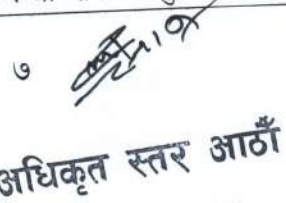 ७
अधिकृत स्तर आठौँ